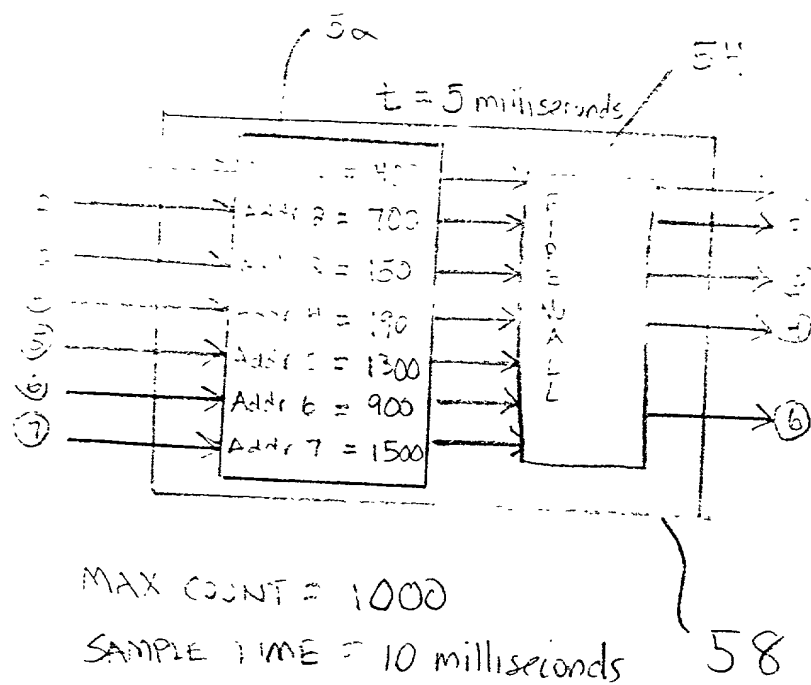 5a
54
t = 5 milliseconds
= 4
Addr 2 = 700
= 150
4 = 190
Addr = 1300
Addr 6 = 900
Addr 7 = 1500
FIREWALL
5
6
7
4
6
MAX COUNT = 1000
SAMPLE TIME = 10 milliseconds
58